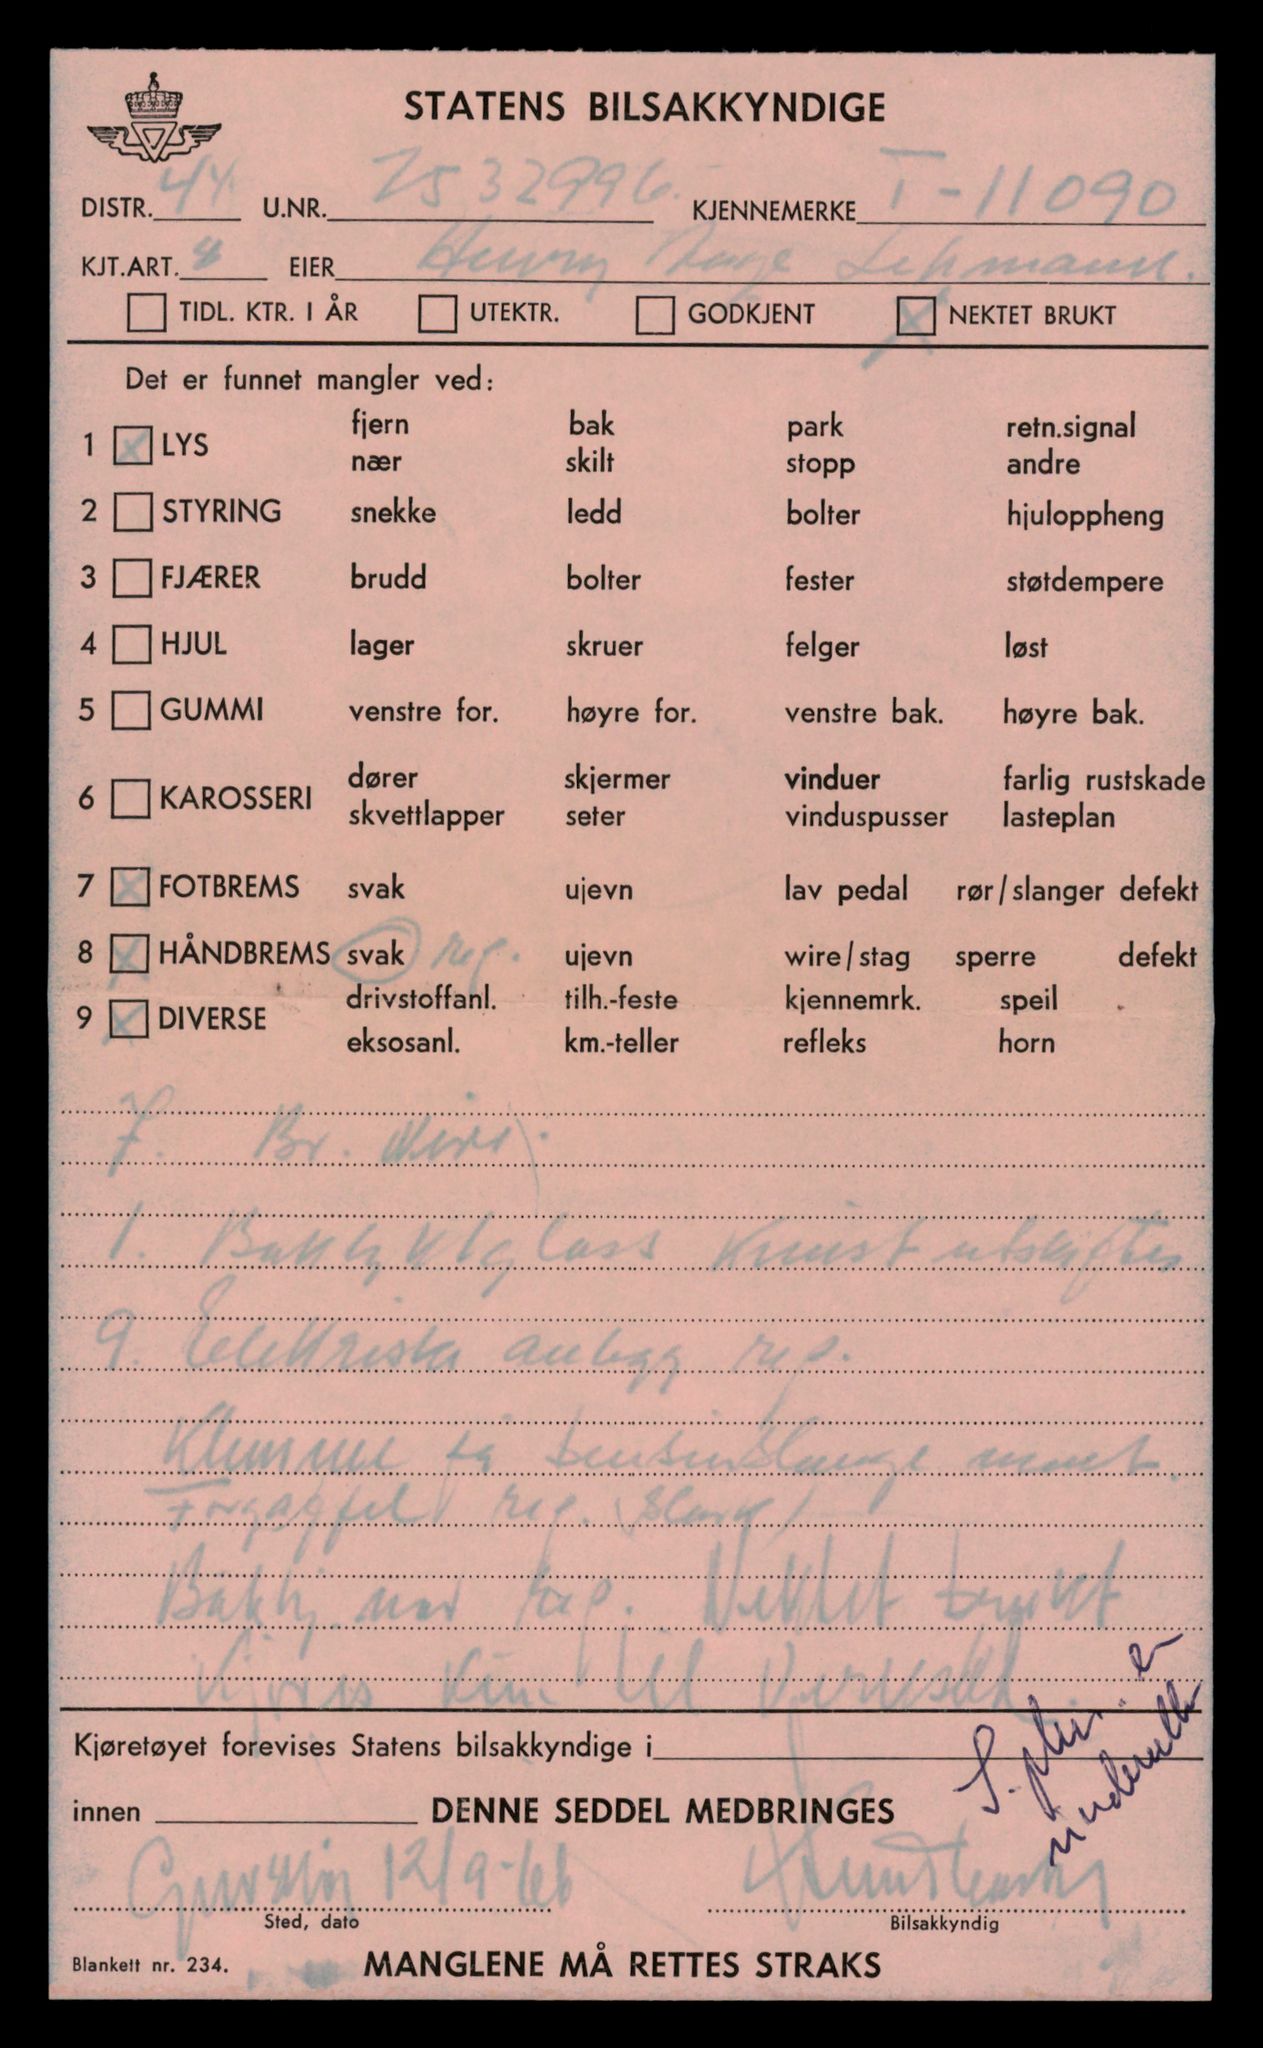 STATENS BILSAKKYNDIGE
DISTR. 44 U.NR. 7532996. KJENNEMERKE T-11090
KJT.ART. 4 EIER Henry Lehmann.
TIDL. KTR. I ÅR UTEKTR. GODKJENT NEKTET BRUKT
Det er funnet mangler ved:
1 LYS fjern bak park retn.signal
nær skilt stopp andre
2 STYRING snekke ledd bolter hjuloppheng
3 FJÆRER brudd bolter fester støtdempere
4 HJUL lager skruer felger løst
5 GUMMI venstre for. høyre for. venstre bak. høyre bak.
6 KAROSSERI dører skjermer vinduer farlig rustskade
skvettlapper seter vinduspusser lasteplan
7 FOTBREMS svak ujevn lav pedal rør/slanger defekt
8 HÅNDBREMS svak rep. ujevn wire/stag sperre defekt
9 DIVERSE drivstoffanl. tilh.-feste kjennemrk. speil
eksosanl. km.-teller refleks horn
7. Br.
1. Baklyktglass knust utskiftes
9. Elektriske anlegg rep.
Klemme på bensinslange mont.
rep.
rep. Nektet brukt
Kjøres kun til verksted.
Kjøretøyet forevises Statens bilsakkyndige i
innen DENNE SEDDEL MEDBRINGES
12/9-66
Sted, dato Bilsakkyndig
Blankett nr. 234. MANGLENE MÅ RETTES STRAKS